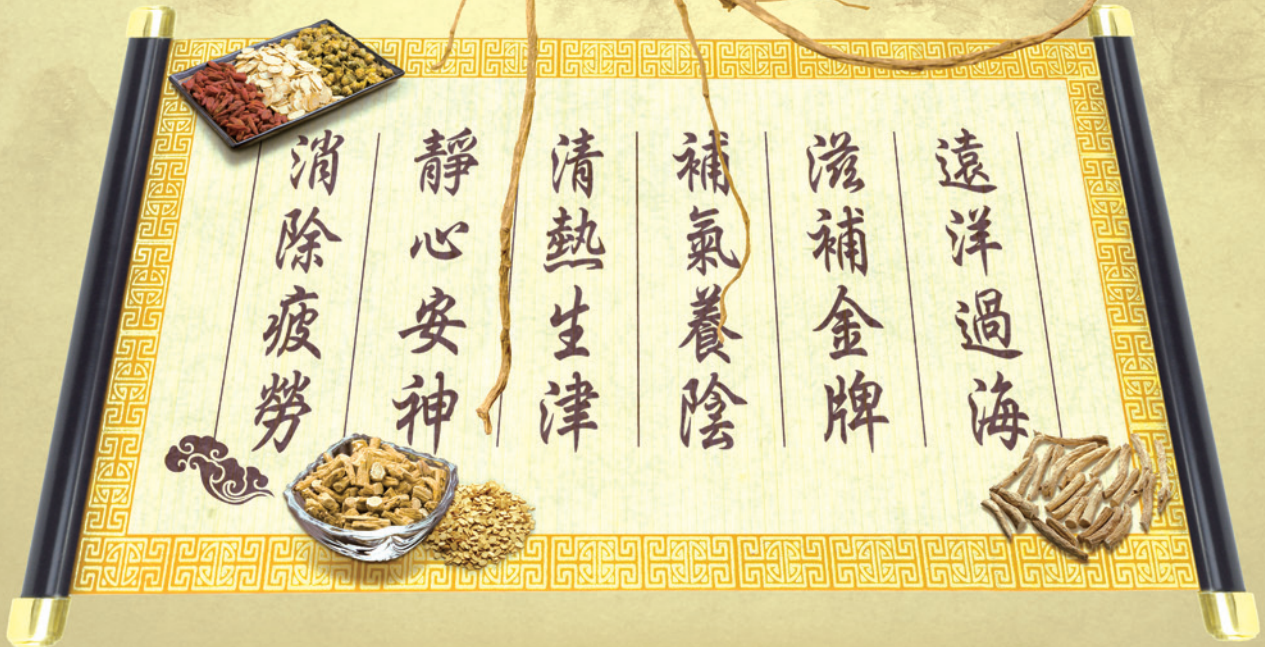 遠洋過海
滋補金牌
補氣養陰
清熱生津
靜心安神
消除疲勞